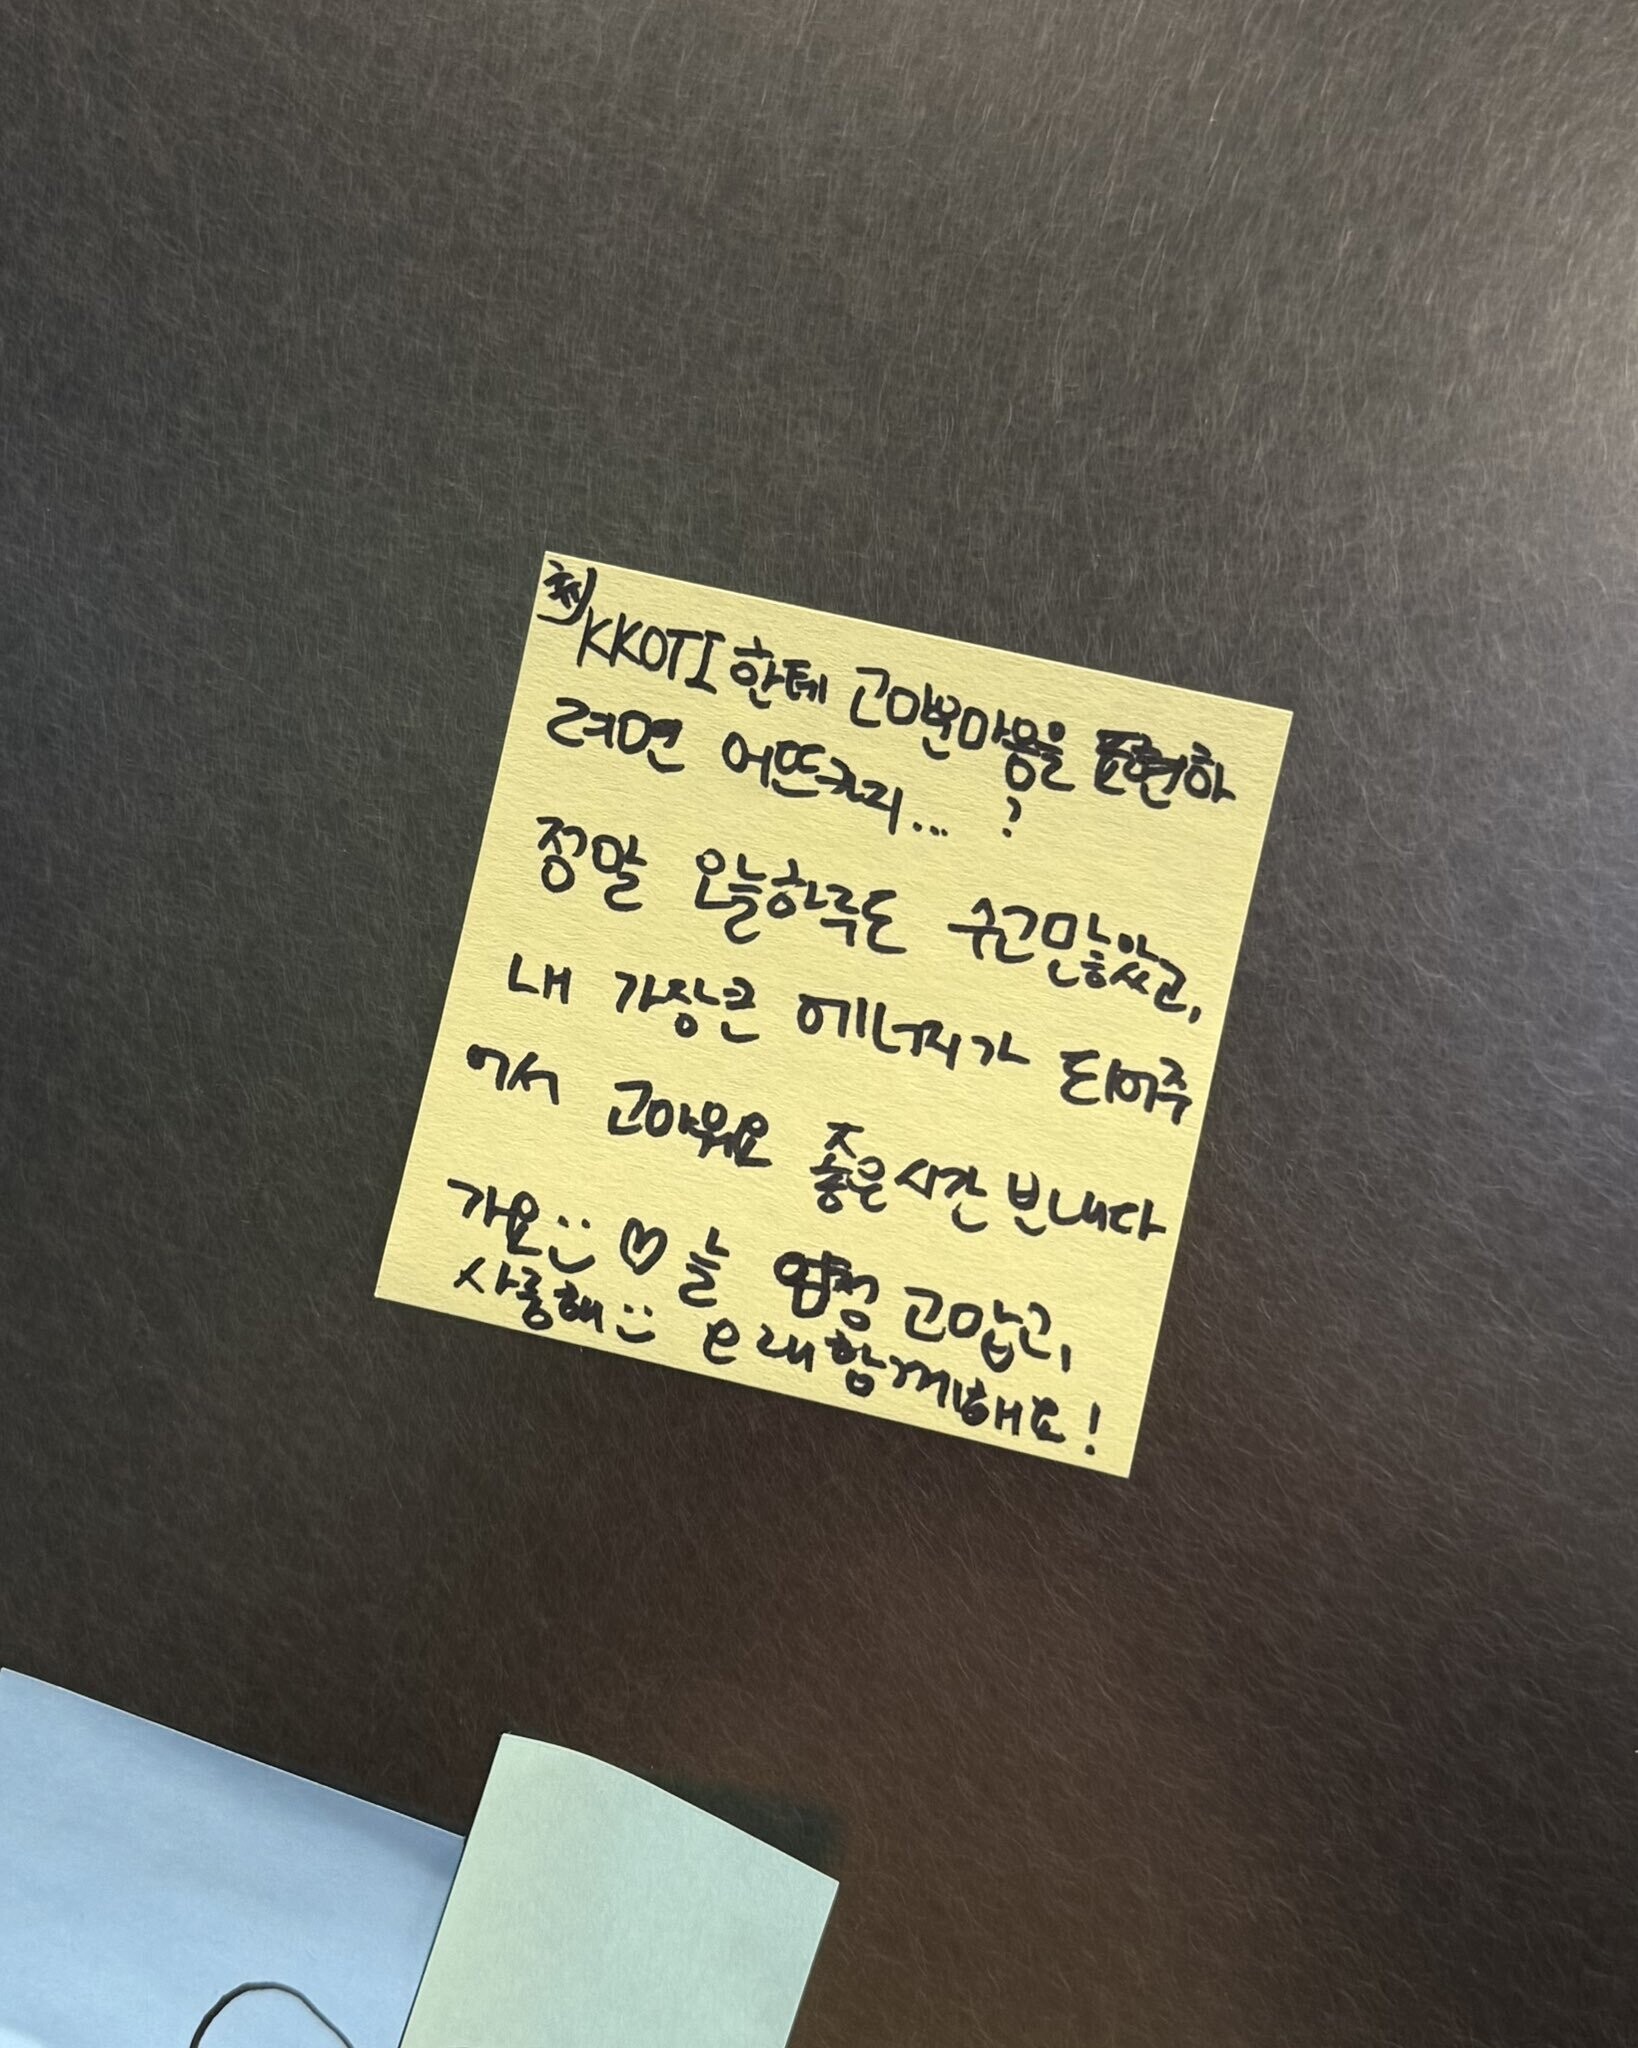 KKOTI한테 고마운마음을 표현하
려면 어뜨카지... ?
정말 오늘하루도 수고많았고,
내 가장큰 에너지가 되어주
어서 고마워요 좋은시간 보내다
가요 :) ♡ 늘 엄청 고맙고,
사룽해 :) 오래함께해요!